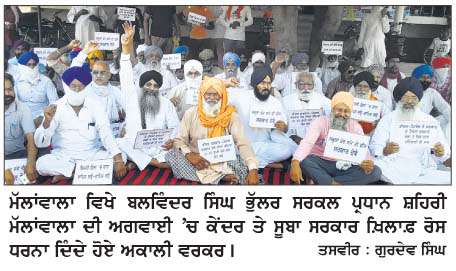 ਮੱਲਾਂਵਾਲਾ ਵਿਖੇ ਬਲਵਿੰਦਰ ਸਿੰਘ ਭੁੱਲਰ ਸਰਕਲ ਪ੍ਰਧਾਨ ਸ਼ਹਿਰੀ
ਮੱਲਾਂਵਾਲਾ ਦੀ ਅਗਵਾਈ 'ਚ ਕੇਂਦਰ ਤੇ ਸੂਬਾ ਸਰਕਾਰ ਖ਼ਿਲਾਫ਼ ਰੋਸ
ਧਰਨਾ ਦਿੰਦੇ ਹੋਏ ਅਕਾਲੀ ਵਰਕਰ। ਤਸਵੀਰ : ਗੁਰਦੇਵ ਸਿੰਘ